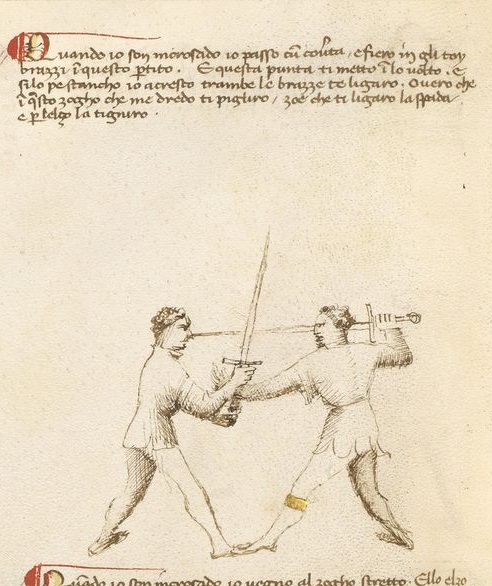 Quando io son incrosado io passo cũ couˀta. e fiero ĩn gli toy
brazzi ĩ questo ꝑtito. E questa punta ti metto ĩ lo uolto. E
si lo pe stancho io acresto trambe le brazze te ligaro. Ouero che
ĩ q̃sto zogho che me dredo ti pigliro / zoe che ti ligaro la spada
e ꝑ lelço la tigniro.
Quãdo io son incrosado io uegno al zogho stretto. Ello elzo